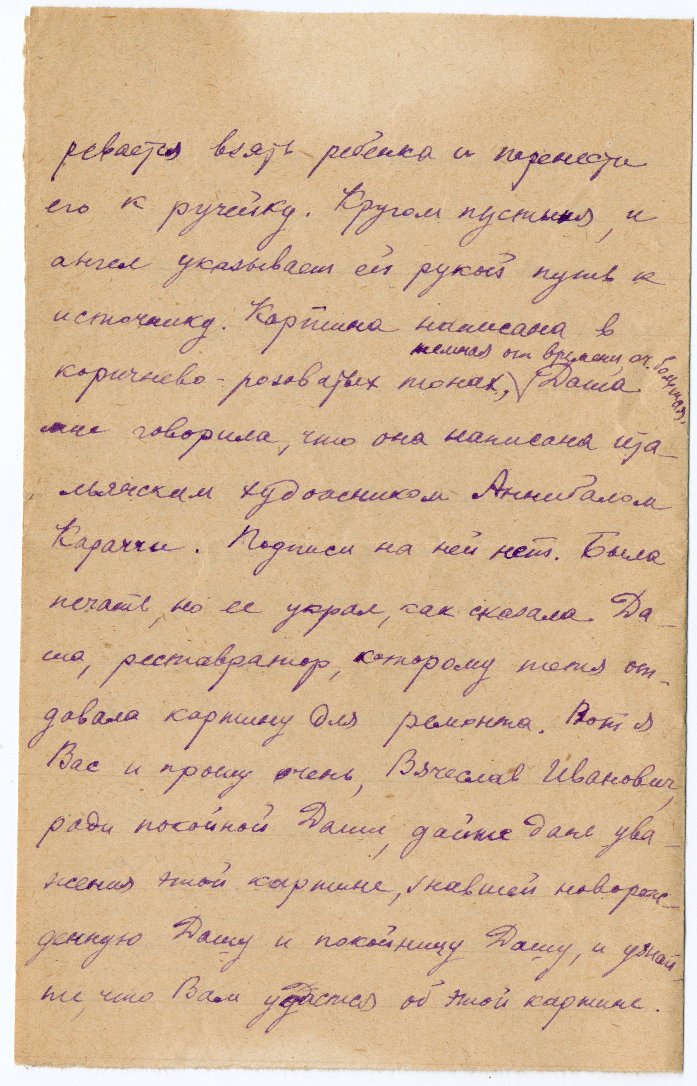 ревается взять ребенка и перенести
его к ручейку. Кругом пустыня, и
ангел указывает ей рукой путь к
источнику. Картина написана в
темная от времени, оч. большая.
коричнево-розоватых тонах, Даша
мне говорила, что она написана ита-
льянским художником Аннибалом
Караччи. Подписи на ней нет. Была
печать, но ее украл, как сказала Да-
ша, реставратор, которому тетя от-
давала картину для ремонта. Вот я
Вас и прошу очень, Вячеслав Иванович,
ради покойной Даши, дайте дань ува-
жения этой картине, знавшей новорож-
денную Дашу и покойницу Дашу, и узнай-
те, что Вам удастся об этой картине.